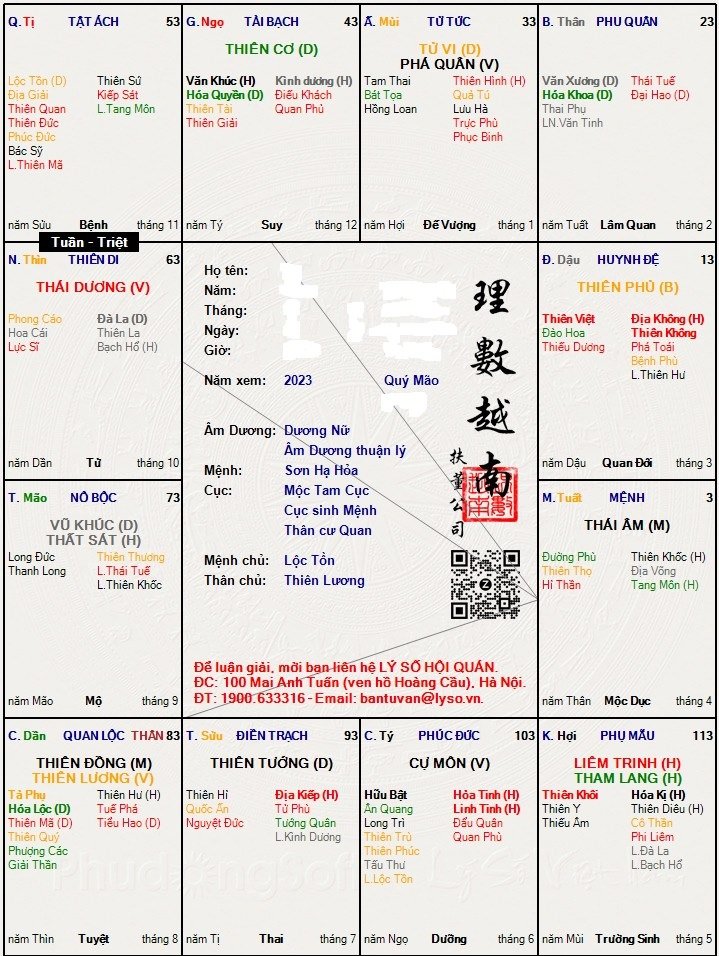 Q. Tị TẬT ÁCH 53
Lộc Tồn (D) Thiên Sứ
Địa Giải Kiếp Sát
Thiên Quan L.Tang Môn
Thiên Đức
Phúc Đức
Bác Sỹ
L.Thiên Mã
năm Sửu Bệnh tháng 11
G. Ngọ TÀI BẠCH 43
THIÊN CƠ (D)
Văn Khúc (H) Kình dương (H)
Hóa Quyền (D) Điếu Khách
Thiên Tài Quan Phủ
Thiên Giải
năm Tý Suy tháng 12
Ấ. Mùi TỬ TỨC 33
TỬ VI (D)
PHÁ QUÂN (V)
Tam Thai Thiên Hình (H)
Bát Tọa Quả Tú
Hồng Loan Lưu Hà
Trực Phù
Phục Binh
năm Hợi Đế Vượng tháng 1
B. Thân PHU QUÂN 23
Văn Xương (D) Thái Tuế
Hóa Khoa (D) Đại Hao (D)
Thai Phụ
LN.Văn Tinh
năm Tuất Lâm Quan tháng 2
Tuần - Triệt
N. Thìn THIÊN DI 63
THÁI DƯƠNG (V)
Phong Cáo Đà La (D)
Hoa Cái Thiên La
Lực Sĩ Bạch Hổ (H)
năm Dần Tử tháng 10
Họ tên:
Năm:
Tháng:
Ngày:
Giờ:
Năm xem: 2023 Quý Mão
Âm Dương: Dương Nữ
Âm Dương thuận lý
Mệnh: Sơn Hạ Hỏa
Cục: Mộc Tam Cục
Cục sinh Mệnh
Thân cư Quan
Mệnh chủ: Lộc Tồn
Thân chủ: Thiên Lương
理數越南
扶董公司
Để luận giải, mời bạn liên hệ LÝ SỐ HỘI QUÁN.
ĐC: 100 Mai Anh Tuấn (ven hồ Hoàng Cầu), Hà Nội.
ĐT: 1900.633316 - Email: bantuvan@lyso.vn.
Đ. Dậu HUYNH ĐỆ 13
THIÊN PHỦ (B)
Thiên Việt Địa Không (H)
Đào Hoa Thiên Không
Thiếu Dương Phá Toái
Bệnh Phù
L.Thiên Hư
năm Dậu Quan Đới tháng 3
T. Mão NÔ BỘC 73
VŨ KHÚC (D)
THẤT SÁT (H)
Long Đức Thiên Thương
Thanh Long L.Thái Tuế
L.Thiên Khốc
năm Mão Mộ tháng 9
M. Tuất MỆNH 3
THÁI ÂM (M)
Đường Phù Thiên Khốc (H)
Thiên Thọ Địa Võng
Hỉ Thần Tang Môn (H)
năm Thân Mộc Dục tháng 4
C. Dần QUAN LỘC THÂN 83
THIÊN ĐỒNG (M)
THIÊN LƯƠNG (V)
Tả Phụ Thiên Hư (H)
Hóa Lộc (D) Tuế Phá
Thiên Mã (D) Tiểu Hao (D)
Thiên Quý
Phượng Các
Giải Thần
năm Thìn Tuyệt tháng 8
T. Sửu ĐIỀN TRẠCH 93
THIÊN TƯỚNG (D)
Thiên Hỉ Địa Kiếp (H)
Quốc Ấn Tử Phù
Nguyệt Đức Tướng Quân
L.Kình Dương
năm Tị Thai tháng 7
C. Tý PHÚC ĐỨC 103
CỰ MÔN (V)
Hữu Bật Hỏa Tinh (H)
Ân Quang Linh Tinh (H)
Long Trì Đẩu Quân
Thiên Trù Quan Phù
Thiên Phúc
Tấu Thư
L.Lộc Tồn
năm Ngọ Dưỡng tháng 6
K. Hợi PHỤ MẪU 113
LIÊM TRINH (H)
THAM LANG (H)
Thiên Khôi Hóa Kị (H)
Thiên Y Thiên Diêu (H)
Thiếu Âm Cô Thần
Phi Liêm
L.Đà La
L.Bạch Hổ
năm Mùi Trường Sinh tháng 5